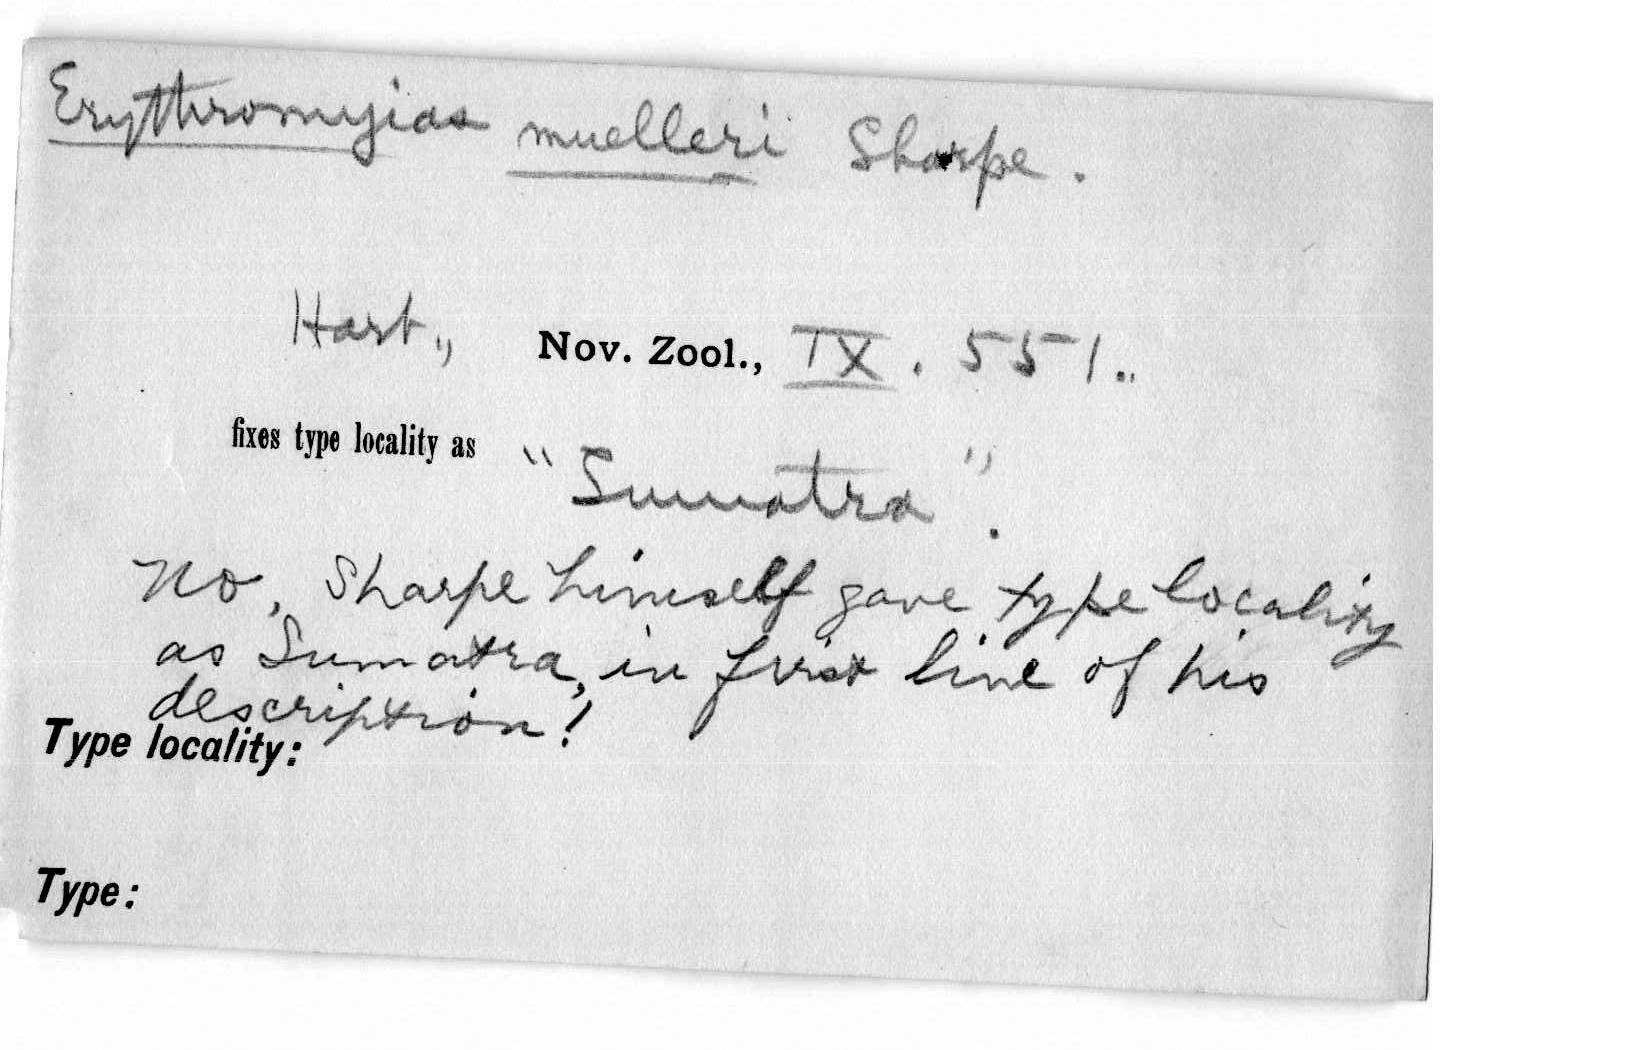 Erythromyias muelleri Sharpe.
Hart., Nov. Zool., IX. 551..
fixes type locality as "Sumatra".
No, Sharpe himself gave type locality
as Sumatra, in first line of his
description!
Type locality:
Type: